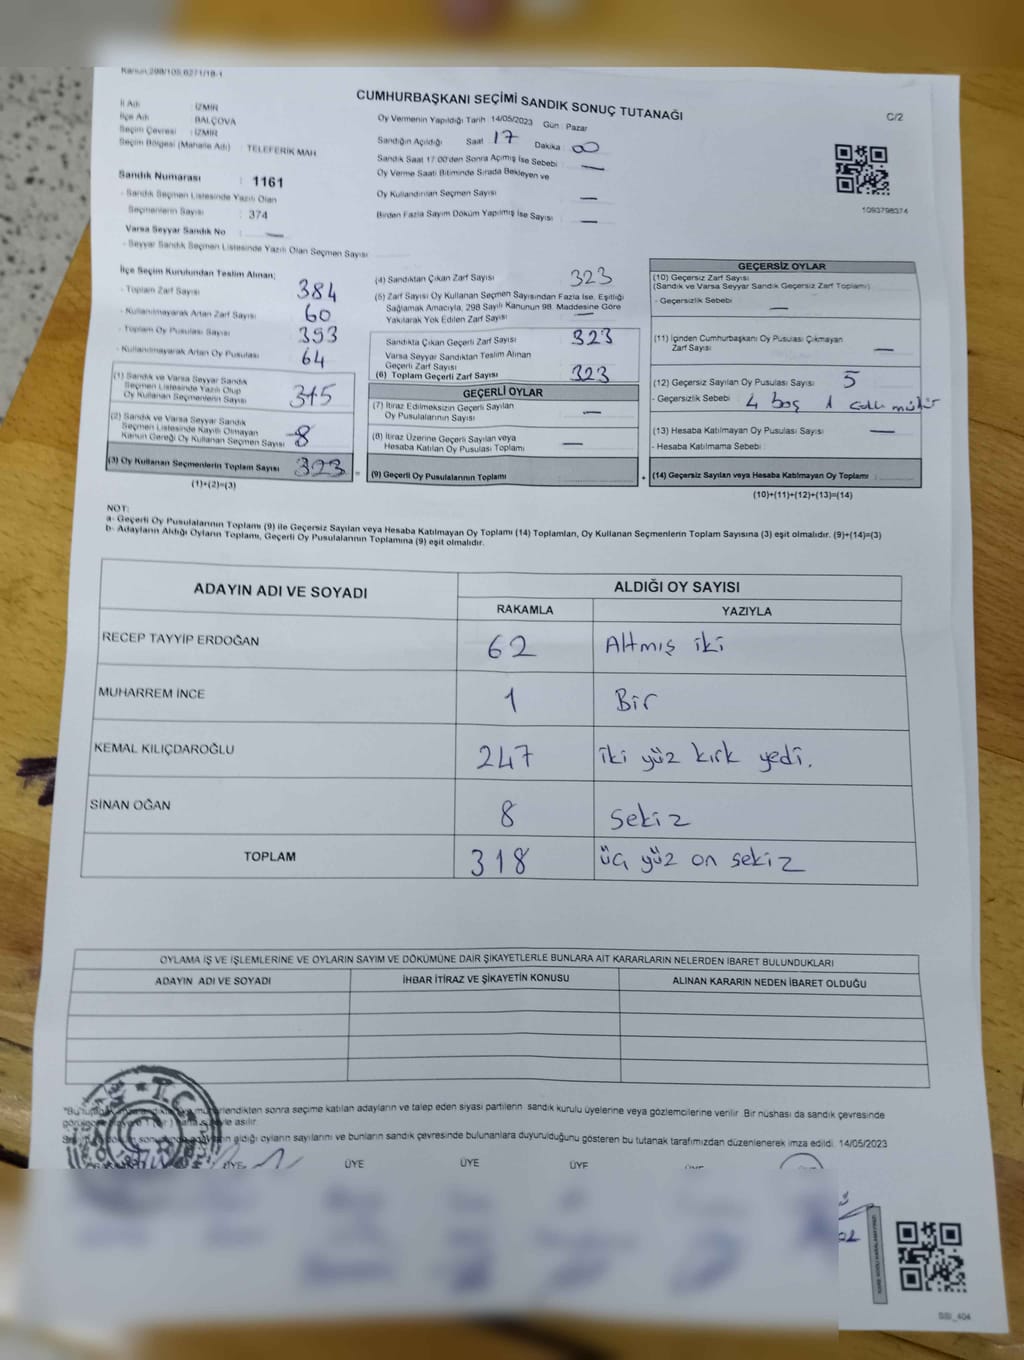 Kanun:298/105,6271/18-1
CUMHURBAŞKANI SEÇİMİ SANDIK SONUÇ TUTANAĞI
C/2
İl Adı : İZMİR
İlçe Adı : BALÇOVA
Seçim Çevresi : İZMİR
Seçim Bölgesi (Mahalle Adı) : TELEFERİK MAH
Sandık Numarası : 1161
- Sandık Seçmen Listesinde Yazılı Olan
Seçmenlerin Sayısı : 374
Varsa Seyyar Sandık No : —
- Seyyar Sandık Seçmen Listesinde Yazılı Olan Seçmen Sayısı
Oy Vermenin Yapıldığı Tarih :14/05/2023 Gün : Pazar
Sandığın Açıldığı Saat : 17 Dakika : 00
Sandık Saat 17:00'den Sonra Açılmış İse Sebebi : —
Oy Verme Saati Bitiminde Sırada Bekleyen ve
Oy Kullandırılan Seçmen Sayısı : —
Birden Fazla Sayım Döküm Yapılmış İse Sayısı : —
1093798374
İlçe Seçim Kurulundan Teslim Alınan;
- Toplam Zarf Sayısı : 384
- Kullanılmayarak Artan Zarf Sayısı : 60
- Toplam Oy Pusulası Sayısı : 393
- Kullanılmayarak Artan Oy Pusulası : 64
(1) Sandık ve Varsa Seyyar Sandık
Seçmen Listesinde Yazılı Olup
Oy Kullanan Seçmenlerin Sayısı : 315
(2) Sandık ve Varsa Seyyar Sandık
Seçmen Listesinde Kayıtlı Olmayan
Kanun Gereği Oy Kullanan Seçmen Sayısı : 8
(3) Oy Kullanan Seçmenlerin Toplam Sayısı : 323 =
(1)+(2)=(3)
(4) Sandıktan Çıkan Zarf Sayısı : 323
(5) Zarf Sayısı Oy Kullanan Seçmen Sayısından Fazla İse, Eşitliği
Sağlamak Amacıyla, 298 Sayılı Kanunun 98. Maddesine Göre
Yakılarak Yok Edilen Zarf Sayısı : —
Sandıkta Çıkan Geçerli Zarf Sayısı : 323
Varsa Seyyar Sandıktan Teslim Alınan
Geçerli Zarf Sayısı :
(6) Toplam Geçerli Zarf Sayısı : 323
GEÇERLİ OYLAR
(7) İtiraz Edilmeksizin Geçerli Sayılan
Oy Pusulalarının Sayısı : —
(8) İtiraz Üzerine Geçerli Sayılan veya
Hesaba Katılan Oy Pusulası Toplamı : —
(9) Geçerli Oy Pusulalarının Toplamı : +
GEÇERSİZ OYLAR
(10) Geçersiz Zarf Sayısı
(Sandık ve Varsa Seyyar Sandık Geçersiz Zarf Toplamı) :
- Geçersizlik Sebebi : —
(11) İçinden Cumhurbaşkanı Oy Pusulası Çıkmayan
Zarf Sayısı : —
(12) Geçersiz Sayılan Oy Pusulası Sayısı : 5
- Geçersizlik Sebebi : 4 boş 1
(13) Hesaba Katılmayan Oy Pusulası Sayısı : —
- Hesaba Katılmama Sebebi :
(14) Geçersiz Sayılan veya Hesaba Katılmayan Oy Toplamı :
(10)+(11)+(12)+(13)=(14)
NOT:
a- Geçerli Oy Pusulalarının Toplamı (9) ile Geçersiz Sayılan veya Hesaba Katılmayan Oy Toplamı (14) Toplamları, Oy Kullanan Seçmenlerin Toplam Sayısına (3) eşit olmalıdır. (9)+(14)=(3)
b- Adayların Aldığı Oyların Toplamı, Geçerli Oy Pusulalarının Toplamına (9) eşit olmalıdır.
ADAYIN ADI VE SOYADI ALDIĞI OY SAYISI
RAKAMLA YAZIYLA
RECEP TAYYİP ERDOĞAN 62 Altmış iki
MUHARREM İNCE 1 Bir
KEMAL KILIÇDAROĞLU 247 iki yüz kırk yedi.
SİNAN OĞAN 8 Sekiz
TOPLAM 318 üç yüz on sekiz
OYLAMA İŞ VE İŞLEMLERİNE VE OYLARIN SAYIM VE DÖKÜMÜNE DAİR ŞİKAYETLERLE BUNLARA AİT KARARLARIN NELERDEN İBARET BULUNDUKLARI
ADAYIN ADI VE SOYADI İHBAR İTİRAZ VE ŞİKAYETİN KONUSU ALINAN KARARIN NEDEN İBARET OLDUĞU
sonra seçime katılan adayların ve talep eden siyasi partilerin sandık kurulu üyelerine veya gözlemcilerine verilir. Bir nüshası da sandık çevresinde
asılır.
aldığı oyların sayılarını ve bunların sandık çevresinde bulunanlara duyurulduğunu gösteren bu tutanak tarafımızdan düzenlenerek imza edildi. 14/05/2023
T.C.
ÜYE ÜYE ÜYE ÜYE
SSI_404